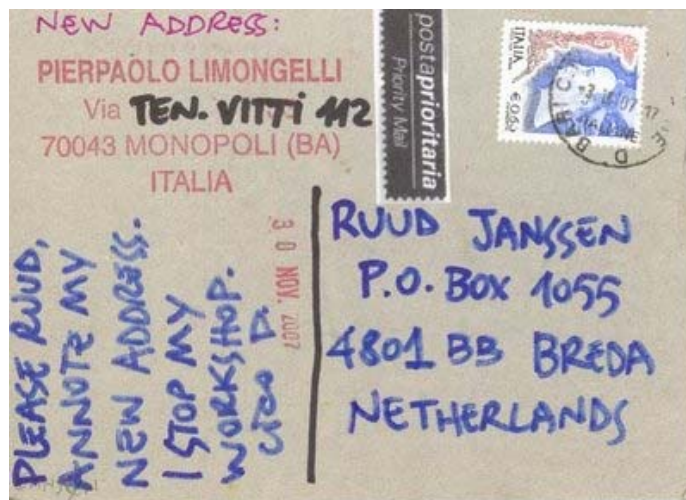 NEW ADDRESS:
PIERPAOLO LIMONGELLI
Via TEN. VITTI 112
70043 MONOPOLI (BA)
ITALIA
postaprioritaria
Priority Mail
ITALIA
€0,62
30 NOV. 2007
PLEASE RUUD,
ANNOTE MY
NEW ADDRESS.
I STOP MY
WORKSHOP.
RUUD JANSSEN
P.O. BOX 1055
4801 BB BREDA
NETHERLANDS